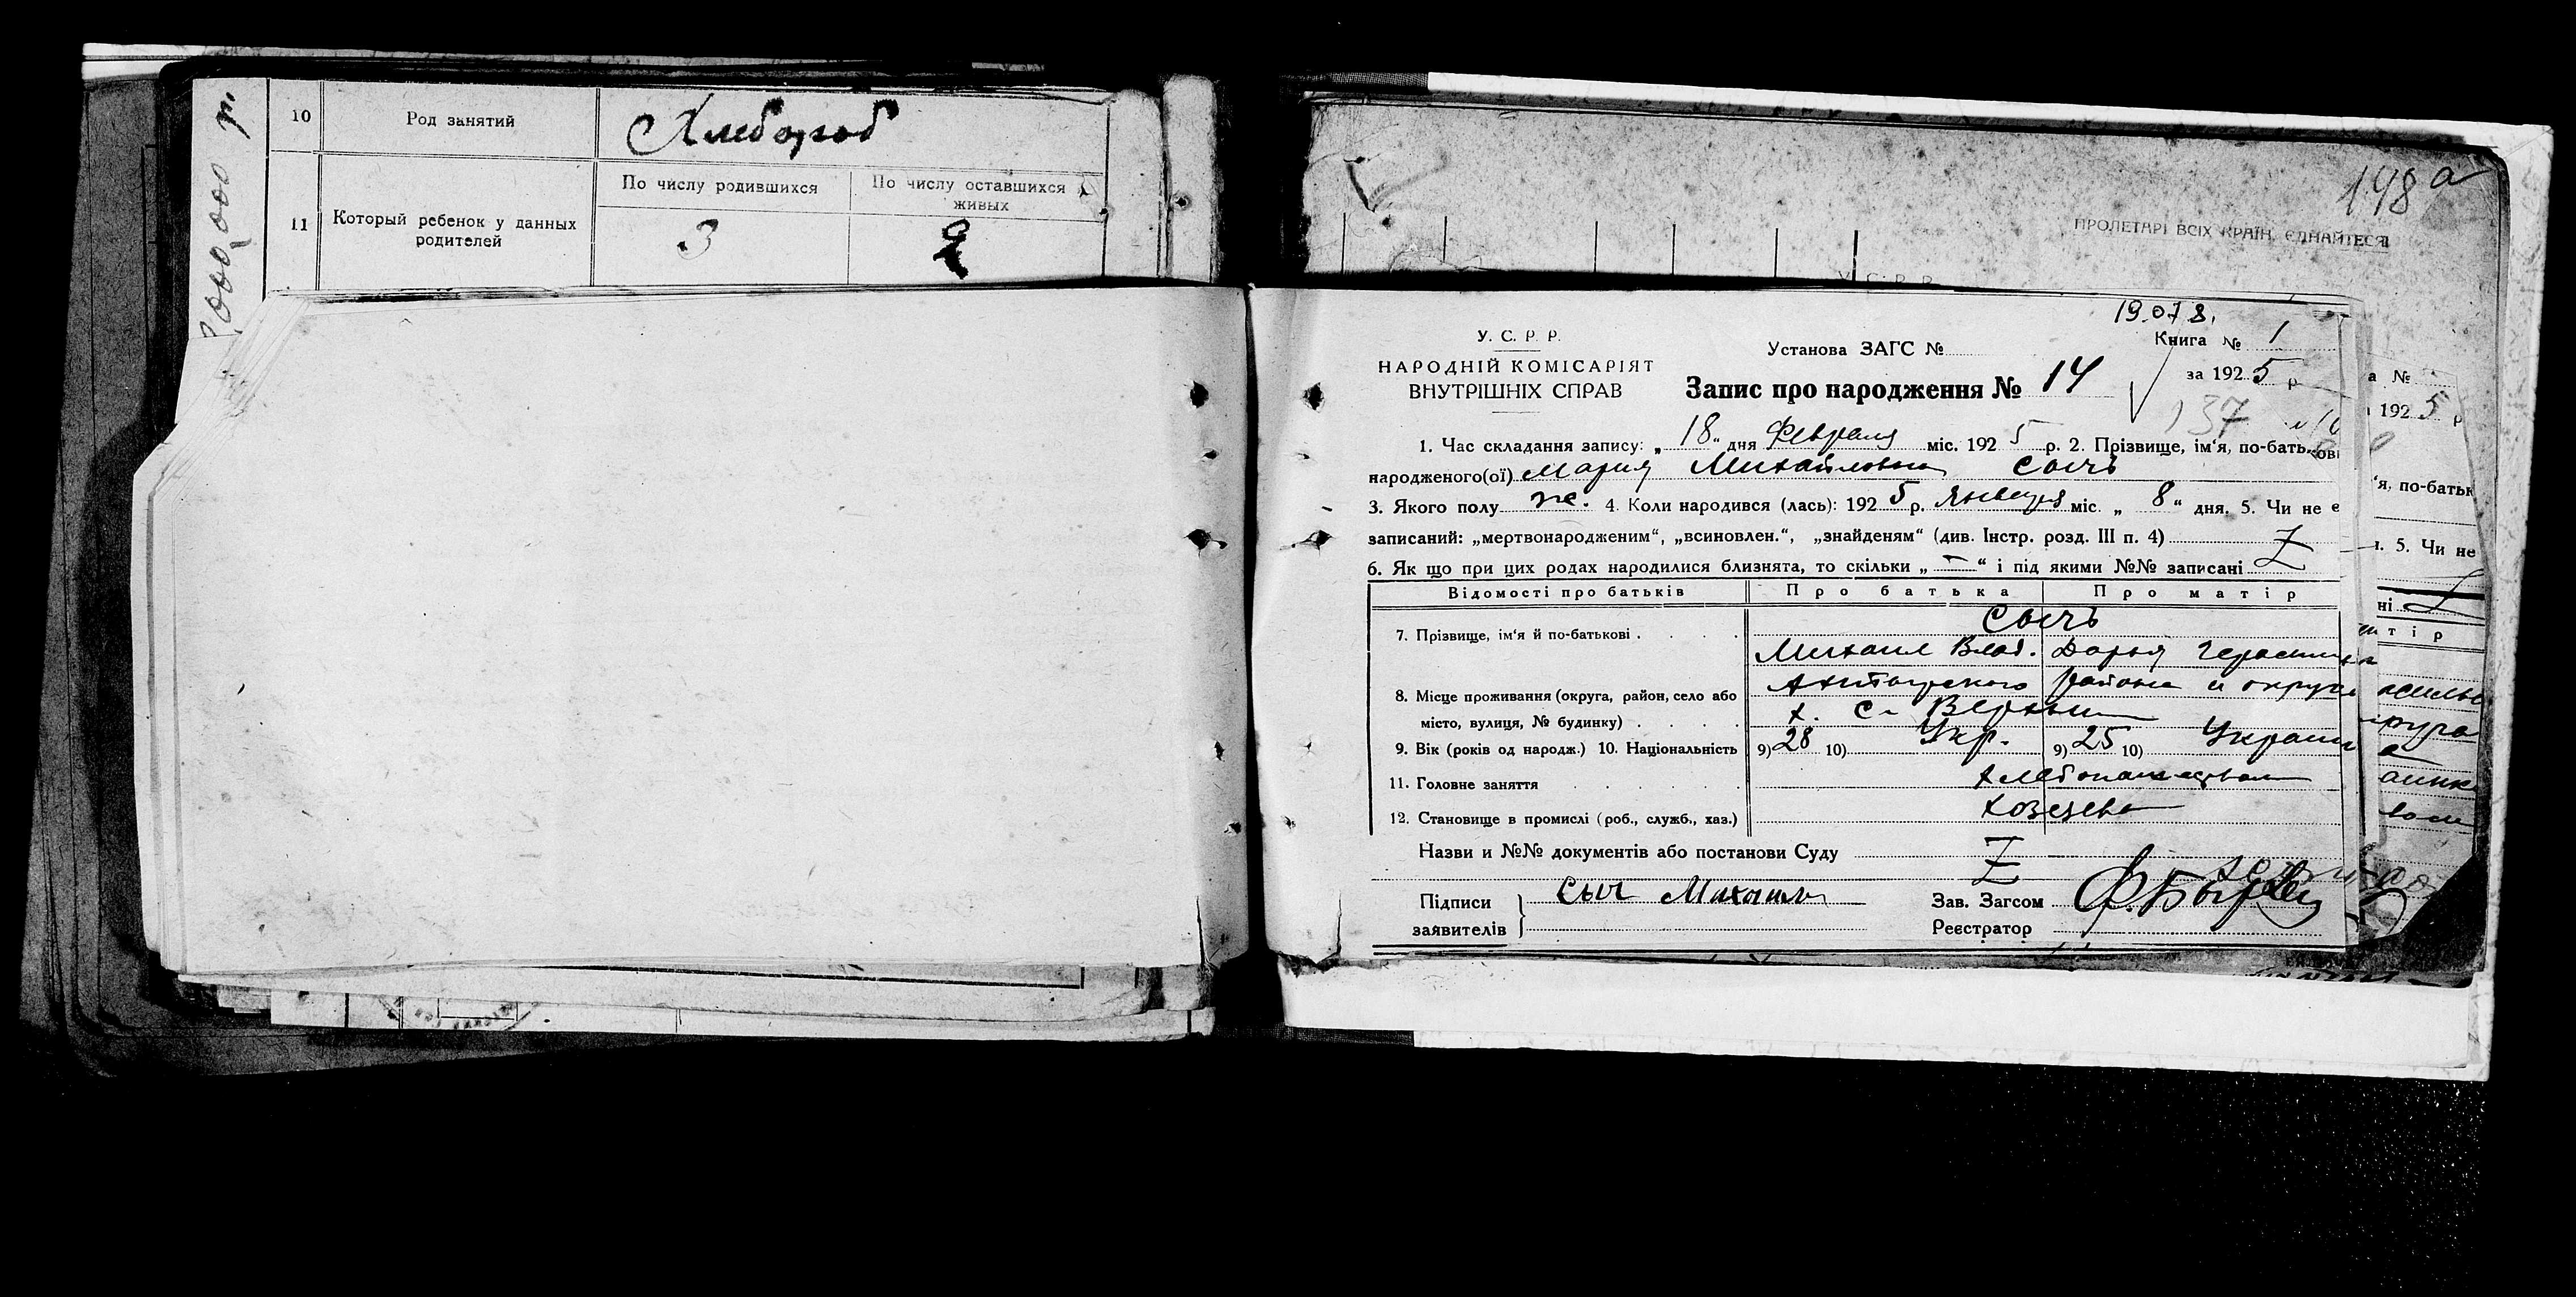 000,000 р.
10 Род занятий Хлебороб
11 Который ребенок у данных родителей
По числу родившихся По числу оставшихся живых
3 2
148 а
ПРОЛЕТАРІ ВСІХ КРАЇН, ЄДНАЙТЕСЯ
У. С. Р. Р.
19.07 8.
У. С. Р. Р.
НАРОДНІЙ КОМІСАРІЯТ
ВНУТРІШНІХ СПРАВ
Установа ЗАГС №
Книга № 1
за 192 5 р
Запис про народження № 14
137
1. Час складання запису: „ 18 “ дня Февраля міс. 192 5 р. 2. Прізвище, ім‘я, по-батькові
народженого(ої) Мария Михайловна Сычъ
3. Якого полу ж. 4. Коли народився (лась): 192 5 р. Января міс. „ 8 “ дня. 5. Чи не є
записаний: „мертвонародженим“, „всиновлен.“, „знайденям“ (див. Інстр. розд. III п. 4) Z
6. Як що при цих родах народилися близнята, то скільки „ — “ і під якими №№ записані Z
Відомості про батьків Про батька Про матір
7. Прізвище, ім‘я й по-батькові Сычъ
Михаил Влад. Дарья
8. Місце проживання (округа, район, село або района и округа
місто, вулиця, № будинку) х.
9. Вік (років од народж.) 10. Національність 9) 28 10) Укр. 9) 25 10) Украин
11. Головне заняття
12. Становище в промислі (роб., служб., хаз.)
Назви и №№ документів або постанови Суду Z
Підписи заявителів Сыч Михаил
Зав. Загсом
Реєстратор
а №
192 5 р
‘я, по-батьк
5. Чи не
ні
т і р